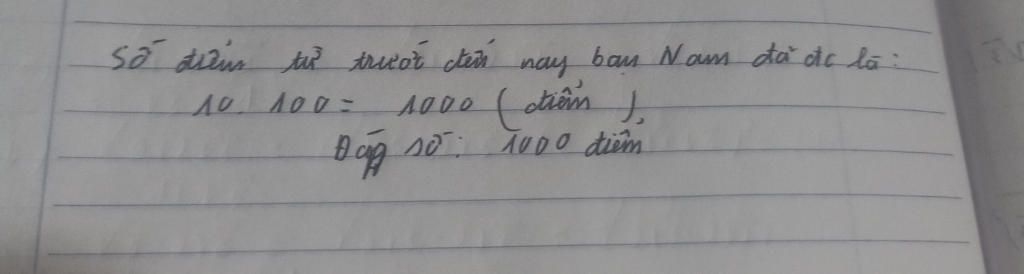 Số điểm từ trước đến nay bạn Nam đã đc là:
10. 100 = 1000 (điểm),
Đáp số: 1000 điểm